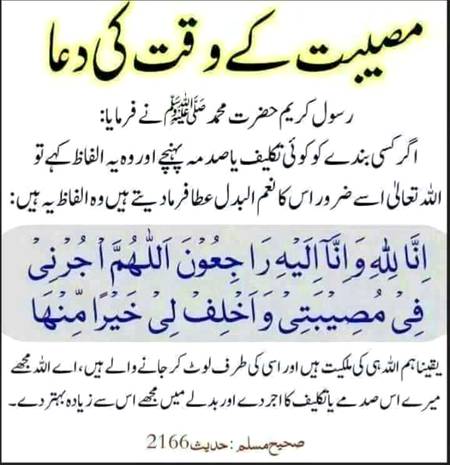 مصیبت کے وقت کی دعا
رسول کریم حضرت محمد ﷺ نے فرمایا:
اگر کسی بندے کو کوئی تکلیف یا صدمہ پہنچے اور وہ یہ الفاظ کہے تو
اللہ تعالیٰ اسے ضرور اس کا نعم البدل عطا فرما دیتے ہیں وہ الفاظ یہ ہیں:
اِنَّا لِلّٰهِ وَاِنَّآ اِلَيْهِ رَاجِعُوْنَ اَللّٰهُمَّ اْجُرْنِىْ
فِىْ مُصِيْبَتِىْ وَاَخْلِفْ لِىْ خَيْرًا مِّنْهَا
یقینا ہم اللہ ہی کی ملکیت ہیں اور اسی کی طرف لوٹ کر جانے والے ہیں، اے اللہ مجھے
میرے اس صدمے یا تکلیف کا اجر دے اور بدلے میں مجھے اس سے زیادہ بہتر دے۔
صحیح مسلم: حدیث 2166